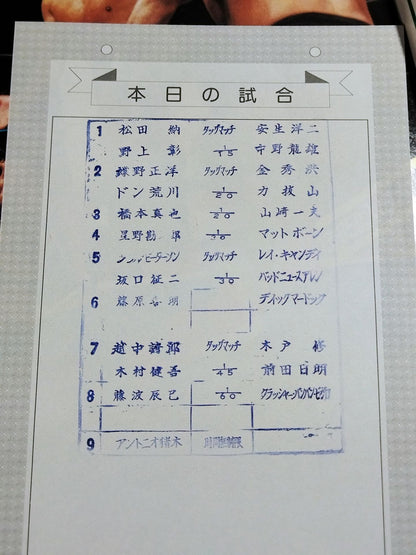 本日の試合
1 松田 納 タッグマッチ 安生洋二
野上 彰 1/15 中野龍雄
2 蝶野正洋 タッグマッチ 金秀洪
ドン荒川 1/20 力抜山
3 橋本真也 1/20 山崎一夫
4 星野勘 1/30 マットボーン
5 タッグマッチ レイ・キャンディ
坂口征二 1/30 バッドニュースアレン
6 藤原喜明 ディックマードック
7 越中詩郎 タッグマッチ 木戸 修
木村健吾 1/45 前田日明
8 藤波辰巳 1/60 クラッシャーバンバン
9 アントニオ猪木 時間無制限